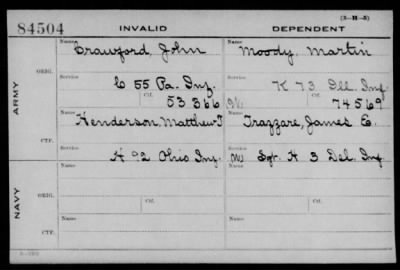 (3-H-5)
84504 INVALID DEPENDENT
Name Name
Crawford, John Moody, Martin
ORIG. Service Service
C 55 Pa. Inf. K 73 Ill. Inf.
Ctf. Ctf.
53366 W. 74569
ARMY
Name Name
Henderson Matthew T Trazzare, James E.
CTF. Service Service
H 92 Ohio Inf. W Sgt. H 3 Del. Inf.
Name Name
ORIG. Service Ctf. Service Ctf.
NAVY
Name Name
CTF. Service Service